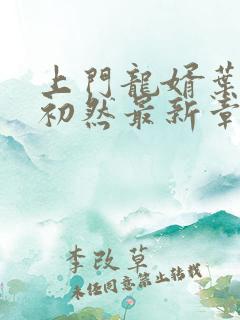 上門龍婿葉
初然最新章
李改草
未经同意禁止转载